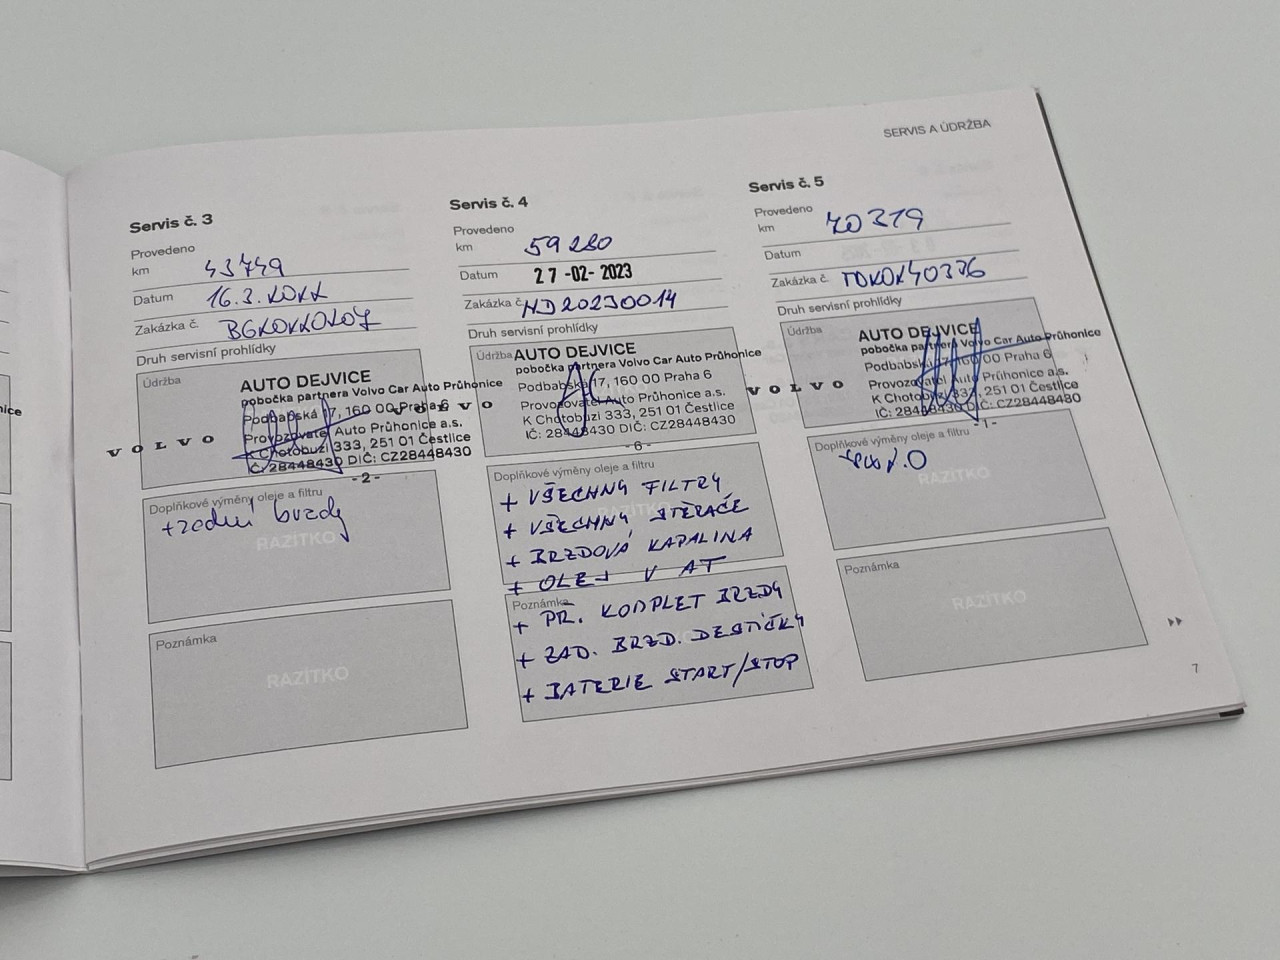 SERVIS A ÚDRŽBA
Servis č. 3
Provedeno
km 43749
Datum 16.3.2022
Zakázka č. BG20220207
Druh servisní prohlídky
Údržba
AUTO DEJVICE
pobočka partnera Volvo Car Auto Průhonice
Podbabská 17, 160 00 Praha 6
Provozovatel Auto Průhonice a.s.
K Chotobuzi 333, 251 01 Čestlice
IČ: 28448430 DIČ: CZ28448430
VOLVO
- 2 -
Doplňkové výměny oleje a filtru
+zadní brzdy
RAZÍTKO
Poznámka
RAZÍTKO
Servis č. 4
Provedeno
km 59280
Datum 27-02-2023
Zakázka č. ND20230014
Druh servisní prohlídky
Údržba
AUTO DEJVICE
pobočka partnera Volvo Car Auto Průhonice
Podbabská 17, 160 00 Praha 6
Provozovatel Auto Průhonice a.s.
K Chotobuzi 333, 251 01 Čestlice
IČ: 28448430 DIČ: CZ28448430
VOLVO
- 6 -
Doplňkové výměny oleje a filtru
+ VŠECHNY FILTRY
+ VŠECHNY STĚRAČE
+ BRZDOVÁ KAPALINA
+ OLEJ V AT
Poznámka
+ PŘ. KOMPLET BRZDY
+ ZAD. BRZD. DESTIČKY
+ BATERIE START/STOP
Servis č. 5
Provedeno
km 70319
Datum
Zakázka č.
Druh servisní prohlídky
Údržba
AUTO DEJVICE
pobočka partnera Volvo Car Auto Průhonice
Podbabská 17, 160 00 Praha 6
Provozovatel Auto Průhonice a.s.
K Chotobuzi 333, 251 01 Čestlice
IČ: 28448430 DIČ: CZ28448430
VOLVO
- 1 -
Doplňkové výměny oleje a filtru
RAZÍTKO
Poznámka
RAZÍTKO
7